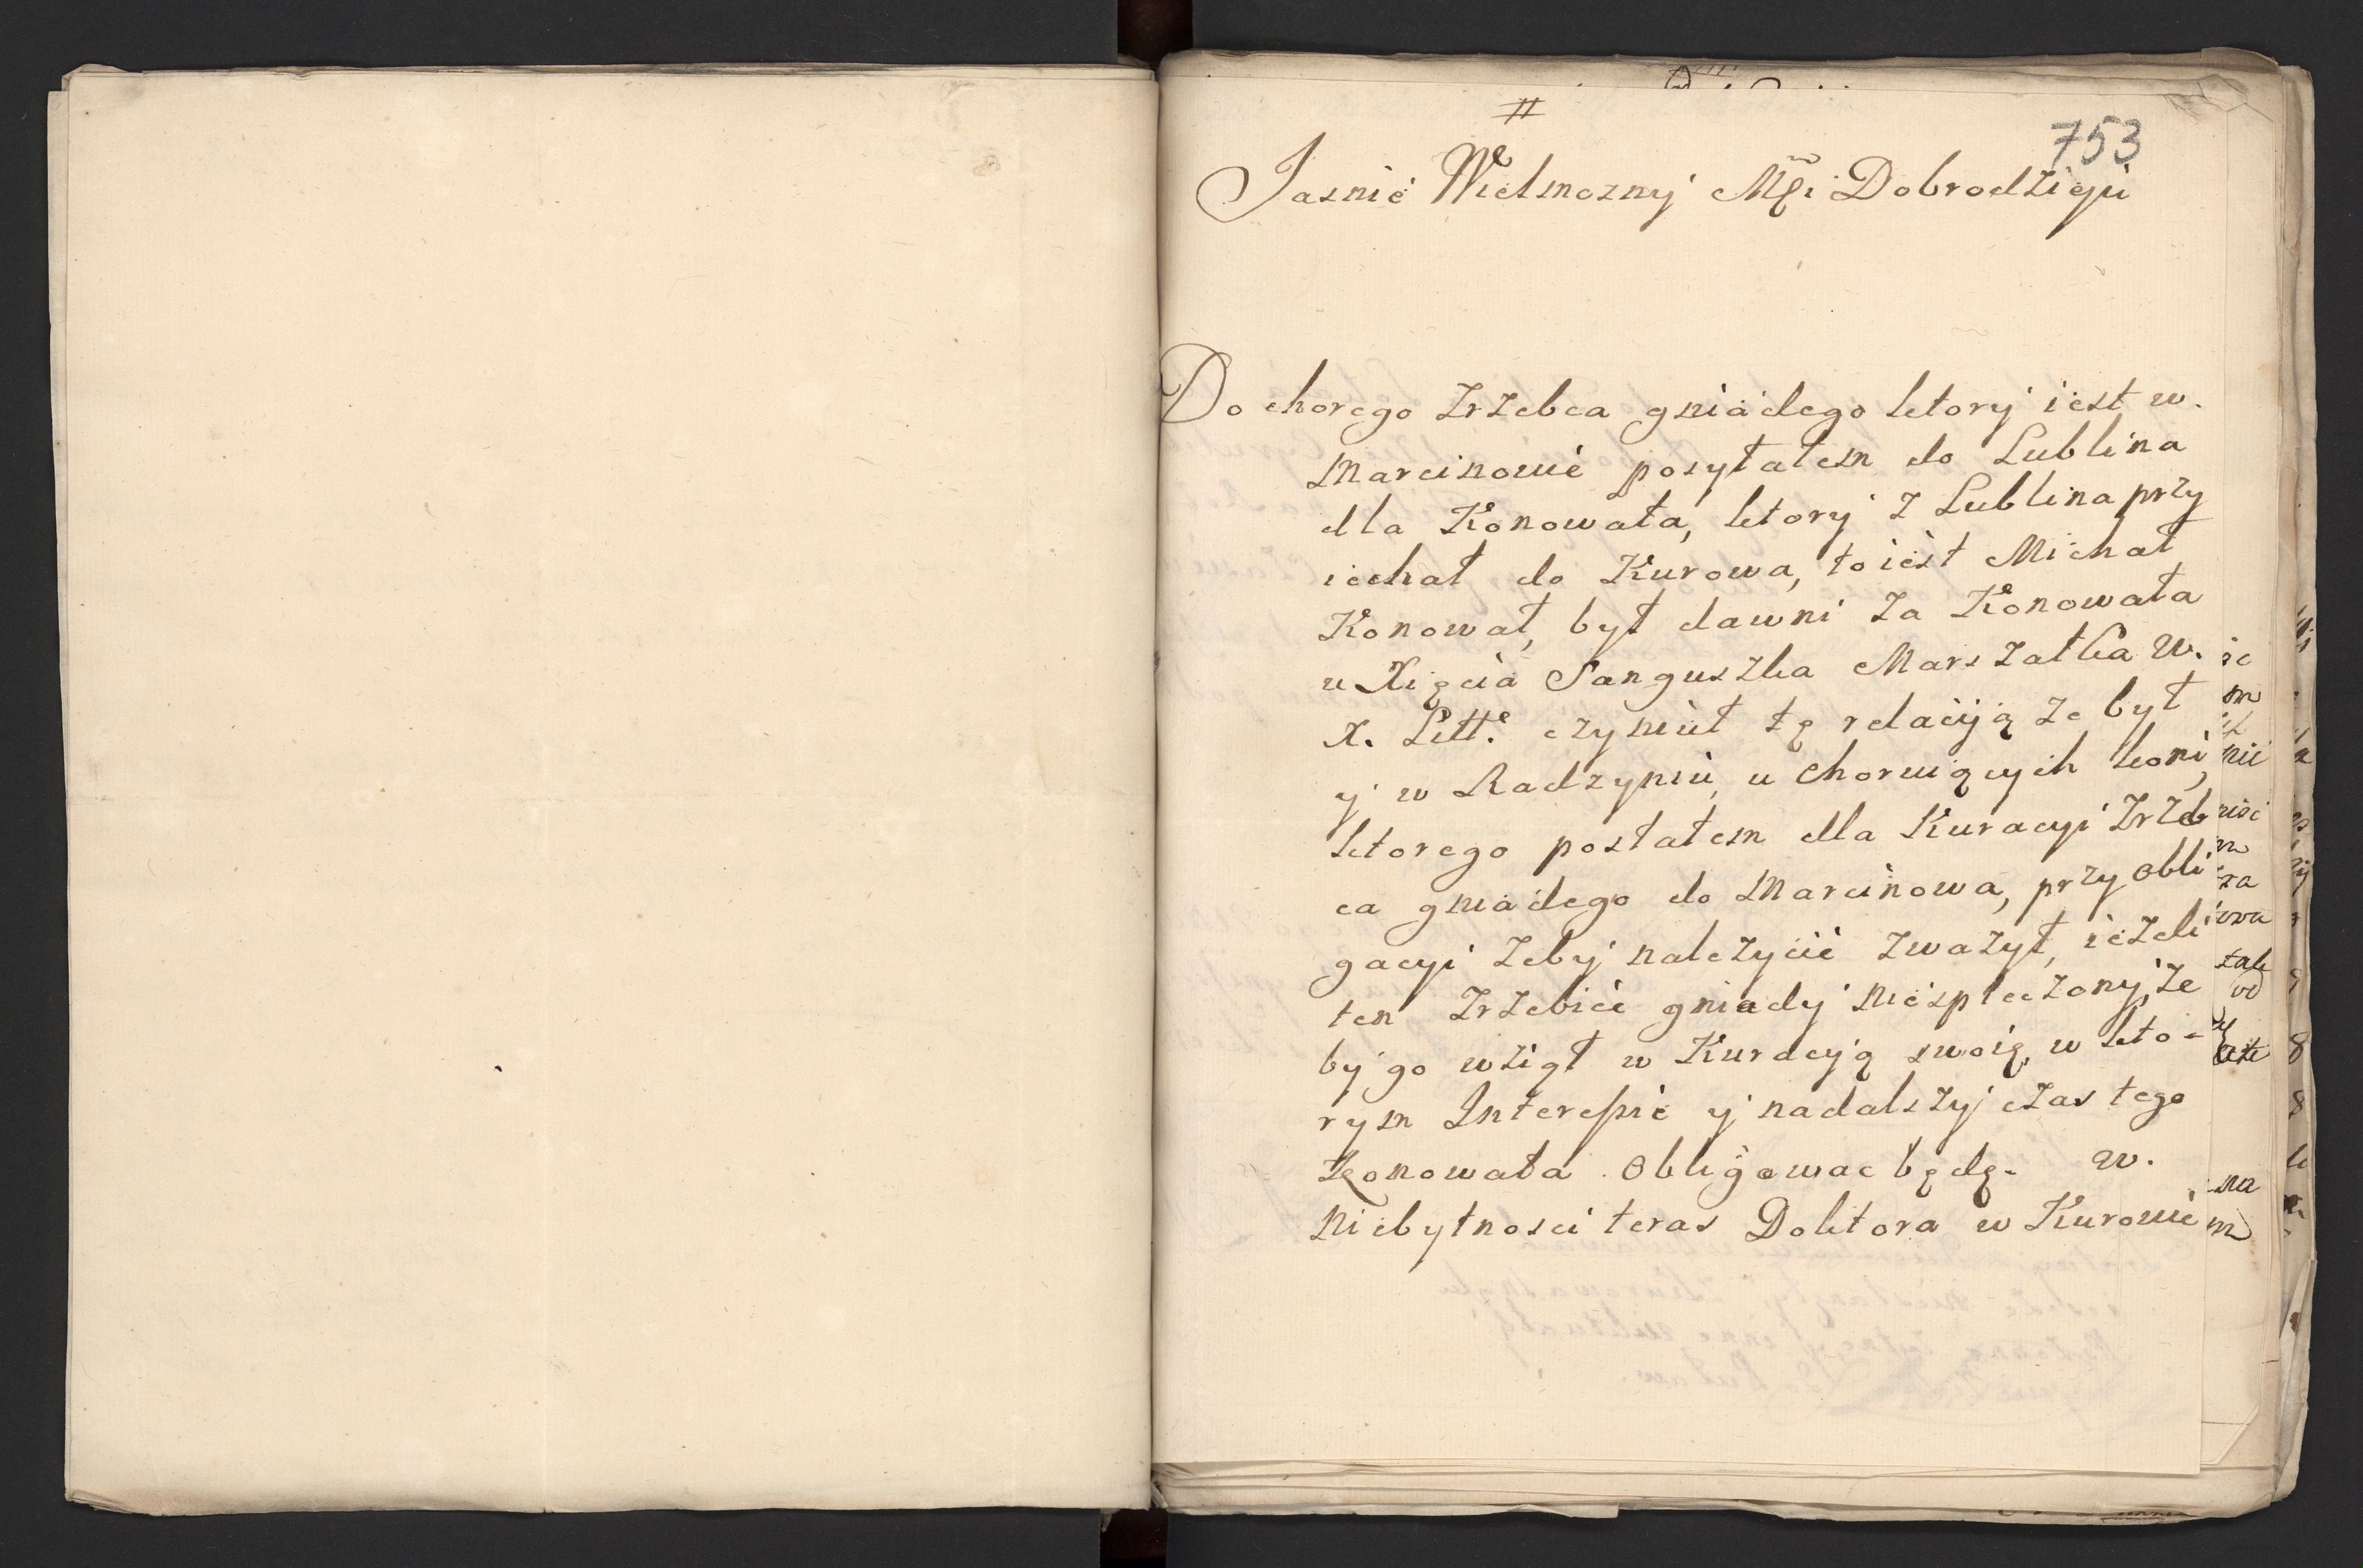 #
753
Jasnie Wielmozny Mći Dobrodzieju
Do chorego zrzebca gniadego ktory iest w.
Marcinowie posyłałem do Lublina
dla Konowała, ktory z Lublina przy
iechał do Kurowa, to iest Michał
Konował, był dawni za Konowała
u Xięcia Sanguszka Marszałka W.
X. Litt: czynił tę relacyją ze był
y w Radzyniu, u choruiących koni,
ktorego posłałem dla Kuracyi zrzeb
ca gniadego do Marcinowa, przy obli
gacyi zeby nalezycie zwazył, iezeli
ten zrzebiec gniady niespleczony, ze
by go wziął w Kuracyją swoię, w kto-
rym Interessie y nadalszy czas tego
Konowała obligowac będę. w.
niebytnosci teras Doktora w Kurowie